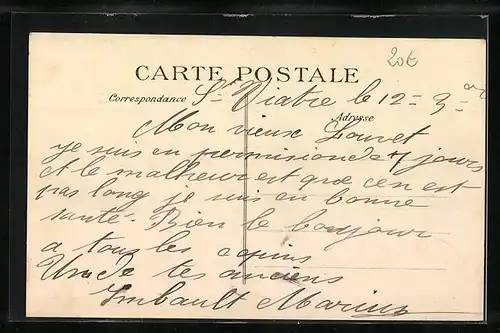 20€
CARTE POSTALE
Correspondance
St Viatre le 12 = 3 =
Adresse
Mon vieux Louvet
je suis en permision de 7 jours
et le malheur est que cen est
pas long je suis en bonne
santé. Bien le bonjour
a tous les copins
Un de tes anciens
Imbault Marius